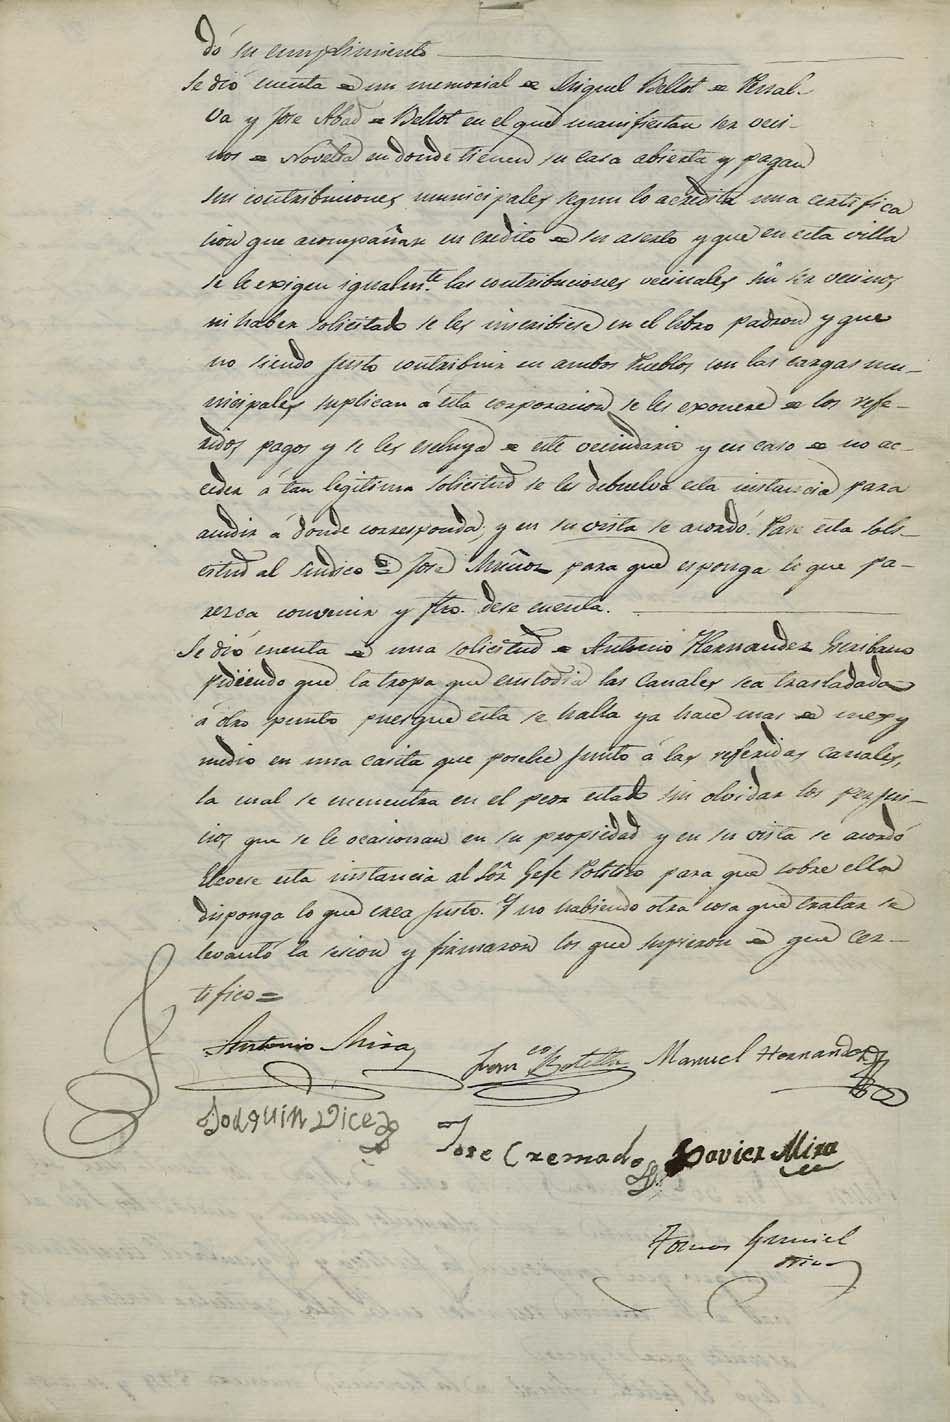 dó su cumplimiento
Se dió cuenta de un memorial de Miguel Bellot de Penal-
va y Jose Abad de Bellot en el que manifiestan ser veci-
nos de Novelda en donde tienen su casa abierta y pagan
sus contribuciones municipales segun lo acredita una certifica
cion que acompañan en credito de su aserto y que en esta villa
se le exigen igualmte. las contribuciones vecinales sin ser vecinos
ni haber solicitado se les inscribiese en el libro padron y que
no siendo justo contribuir en ambos Pueblos con las cargas mu-
nicipales suplican á esta corporacion se les exonere de los refe-
ridos pagos y se les escluya de este vecindario y en caso de no ac-
ceder á tan legitima solicitud se les debuelva esta instancia para
acudir á donde corresponda; y en su vista se acordó: Pase esta soli-
citud al sindico D. José Muñoz para que esponga lo que pa-
rezca convenir y fho. dese cuenta.
Se dió cuenta de una solicitud de Antonio Hernandez Escribano
pidiendo que la tropa que custodia las Canales sea trasladada
á otro punto puesque esta se halla ya hace mas de mes y
medio en una casita que posehe junto á las referidas canales,
la cual se encuentra en el peor estado sin olvidar los perjui-
cios que se le ocasionan en su propiedad y en su vista se acordó
Elevese esta instancia al Sór. Gefe Politico para que sobre ella
disponga lo que crea justo. Y no habiendo otra cosa que tratar se
levantó la sesion y firmaron los que supieron de que cer-
tifico=
Antonio Mira
Franco Botella Manuel Hernandez
Joaquin Vicedo
Jose Cremades Xavier Mira
Tomas